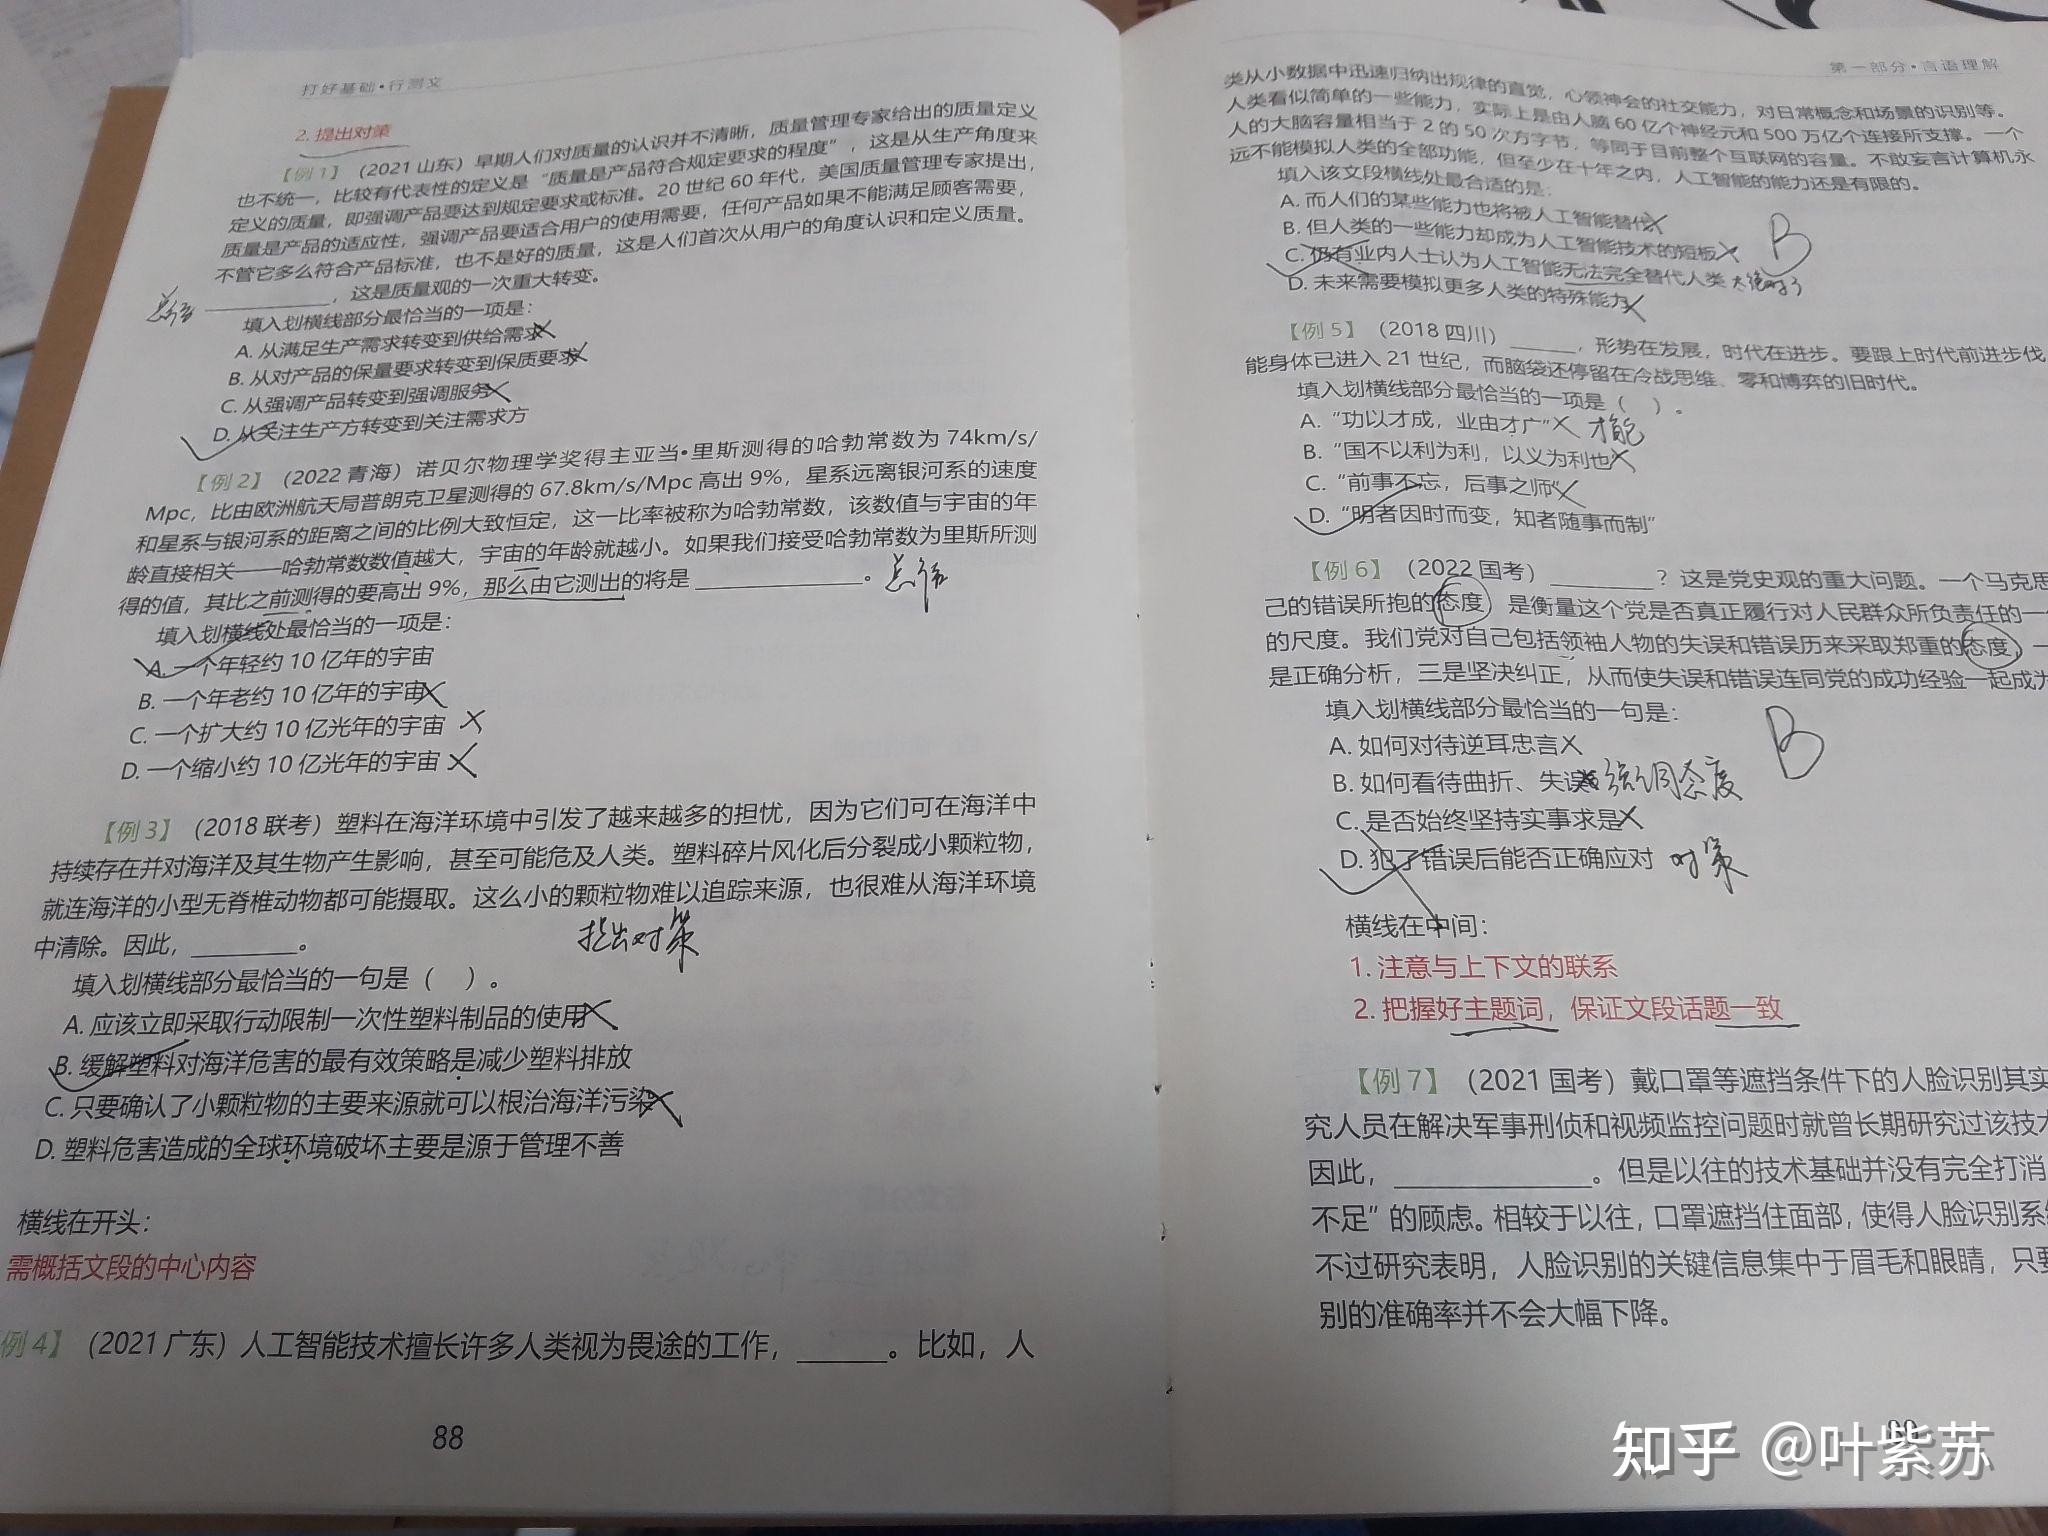 打好基础·行测文
2. 提出对策
【例 1】（2021 山东）早期人们对质量的认识并不清晰，质量管理专家给出的质量定义
也不统一，比较有代表性的定义是“质量是产品符合规定要求的程度”，这是从生产角度来
定义的质量，即强调产品要达到规定要求或标准。20 世纪 60 年代，美国质量管理专家提出，
质量是产品的适应性，强调产品要适合用户的使用需要，任何产品如果不能满足顾客需要，
不管它多么符合产品标准，也不是好的质量，这是人们首次从用户的角度认识和定义质量。
总结 ________，这是质量观的一次重大转变。
填入划横线部分最恰当的一项是：
A. 从满足生产需求转变到供给需求
B. 从对产品的保量要求转变到保质要求
C. 从强调产品转变到强调服务
D. 从关注生产方转变到关注需求方
【例 2】（2022 青海）诺贝尔物理学奖得主亚当·里斯测得的哈勃常数为 74km/s/
Mpc，比由欧洲航天局普朗克卫星测得的 67.8km/s/Mpc 高出 9%，星系远离银河系的速度
和星系与银河系的距离之间的比例大致恒定，这一比率被称为哈勃常数，该数值与宇宙的年
龄直接相关——哈勃常数数值越大，宇宙的年龄就越小。如果我们接受哈勃常数为里斯所测
得的值，其比之前测得的要高出 9%，那么由它测出的将是 ________。总结
填入划横线处最恰当的一项是：
A. 一个年轻约 10 亿年的宇宙
B. 一个年老约 10 亿年的宇宙
C. 一个扩大约 10 亿光年的宇宙
D. 一个缩小约 10 亿光年的宇宙
【例 3】（2018 联考）塑料在海洋环境中引发了越来越多的担忧，因为它们可在海洋中
持续存在并对海洋及其生物产生影响，甚至可能危及人类。塑料碎片风化后分裂成小颗粒物，
就连海洋的小型无脊椎动物都可能摄取。这么小的颗粒物难以追踪来源，也很难从海洋环境
中清除。因此，________。 提出对策
填入划横线部分最恰当的一句是（ ）。
A. 应该立即采取行动限制一次性塑料制品的使用
B. 缓解塑料对海洋危害的最有效策略是减少塑料排放
C. 只要确认了小颗粒物的主要来源就可以根治海洋污染
D. 塑料危害造成的全球环境破坏主要是源于管理不善
横线在开头：
需概括文段的中心内容
例 4】（2021 广东）人工智能技术擅长许多人类视为畏途的工作，______。比如，人
88
第一部分·言语理解
类从小数据中迅速归纳出规律的直觉，心领神会的社交能力，对日常概念和场景的识别等。
人类看似简单的一些能力，实际上是由人脑 60 亿个神经元和 500 万亿个连接所支撑。一个
人的大脑容量相当于 2 的 50 次方字节，等同于目前整个互联网的容量。不敢妄言计算机永
远不能模拟人类的全部功能，但至少在十年之内，人工智能的能力还是有限的。
填入该文段横线处最合适的是：
A. 而人们的某些能力也将被人工智能替代
B. 但人类的一些能力却成为人工智能技术的短板 B
C. 仍有业内人士认为人工智能无法完全替代人类 太绝对了
D. 未来需要模拟更多人类的特殊能力
【例 5】（2018 四川）______，形势在发展，时代在进步。要跟上时代前进步伐
能身体已进入 21 世纪，而脑袋还停留在冷战思维、零和博弈的旧时代。
填入划横线部分最恰当的一项是（ ）。
A. “功以才成，业由才广” 才能
B. “国不以利为利，以义为利也
C. “前事不忘，后事之师”
D. “明者因时而变，知者随事而制”
【例 6】（2022 国考）________？这是党史观的重大问题。一个马克思
己的错误所抱的态度，是衡量这个党是否真正履行对人民群众所负责任的一
的尺度。我们党对自己包括领袖人物的失误和错误历来采取郑重的态度，一
是正确分析，三是坚决纠正，从而使失误和错误连同党的成功经验一起成为
填入划横线部分最恰当的一句是：
A. 如何对待逆耳忠言 B
B. 如何看待曲折、失误 强调态度
C. 是否始终坚持实事求是
D. 犯了错误后能否正确应对 对策
横线在中间：
1. 注意与上下文的联系
2. 把握好主题词，保证文段话题一致
【例 7】（2021 国考）戴口罩等遮挡条件下的人脸识别其实
究人员在解决军事刑侦和视频监控问题时就曾长期研究过该技术
因此，____________。但是以往的技术基础并没有完全打消
不足”的顾虑。相较于以往，口罩遮挡住面部，使得人脸识别系统
不过研究表明，人脸识别的关键信息集中于眉毛和眼睛，只要
别的准确率并不会大幅下降。
知乎 @叶紫苏